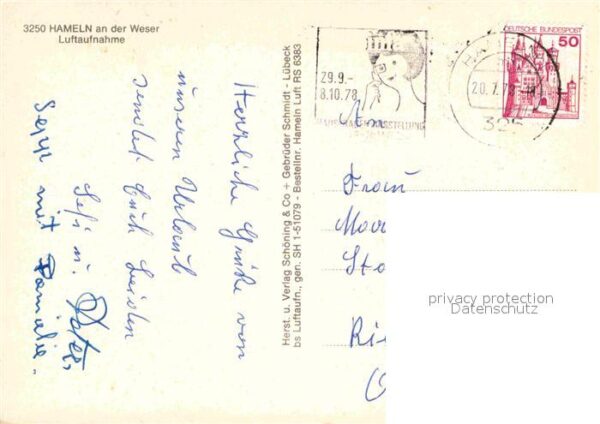 3250 HAMELN an der Weser
Luftaufnahme
Herzliche Grüße von
unserem Urlaub
sendet Euch beiden
mit Familie.
Herst. u. Verlag Schöning & Co + Gebrüder Schmidt - Lübeck
bs Luftaufn., gen. SH 1-51079 - Bestellnr. Hameln Luft RS 6383
29.9.-
8.10.78
DEUTSCHE BUNDESPOST
50
20.7.78
325
An
Frau
privacy protection
Datenschutz